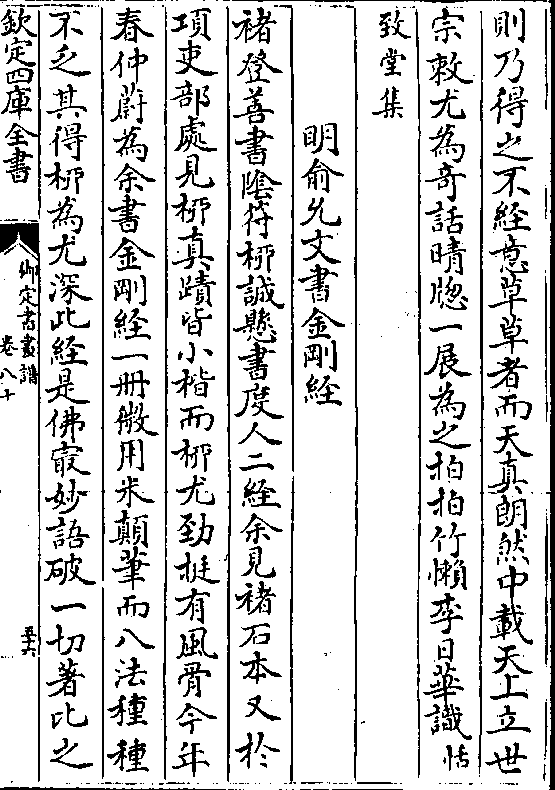 則乃得之不經意草草者而天真朗然中載天上立世
宗敕尤為奇話晴牕一展為之拍拍竹懶李日華識恬
致堂集
明俞允文書金剛經
褚登善書隂符桞誠懸書度人二經余見褚石本又於
項吏部處見桞真蹟皆小楷而桞尤勁挺有風骨今年
春仲蔚為余書金剛經一冊微用米顛筆而八法種種
不乏其得桞為尤深此經是佛㝡妙語破一切著比之
欽定四庫全書
御定書畫譜
卷八十